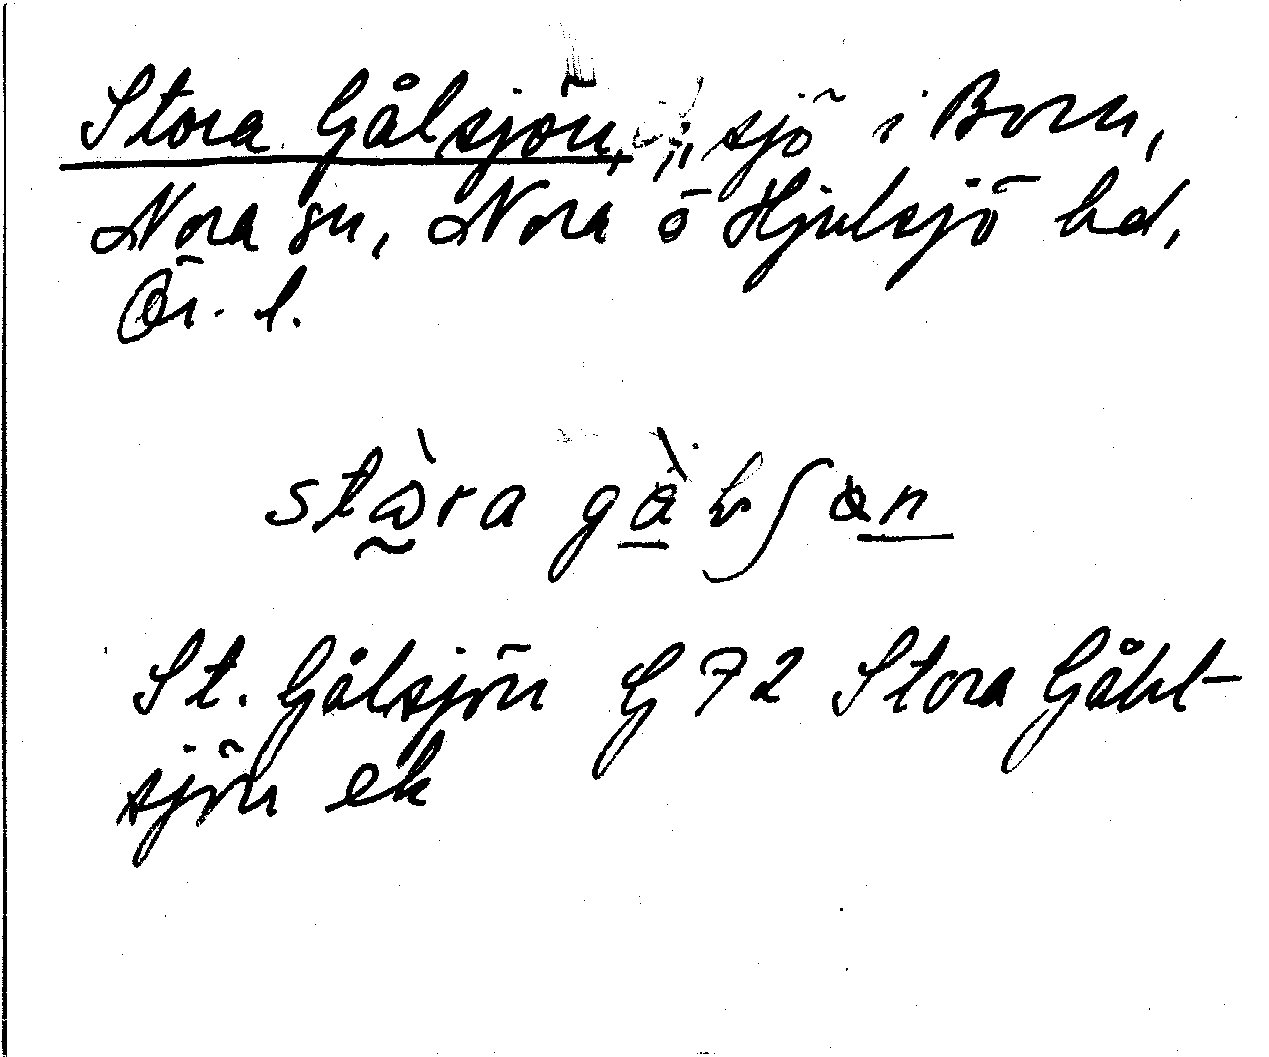 Stora Gålsjön, sjö i Born,
Nora sn, Nora ö Hjulsjö bd,
Ör. l.
St. Gålsjön G 72 Stora Gåbt-
sjön ek